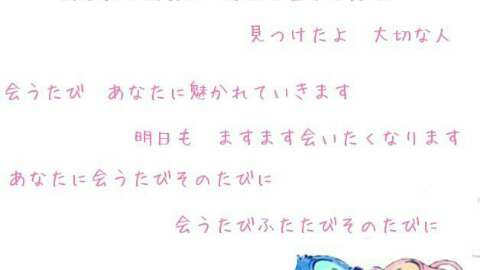 見つけたよ　大切な人
会うたび　あなたに魅かれていきます
明日も　ますます会いたくなります
あなたに会うたびそのたびに
会うたびふたたびそのたびに